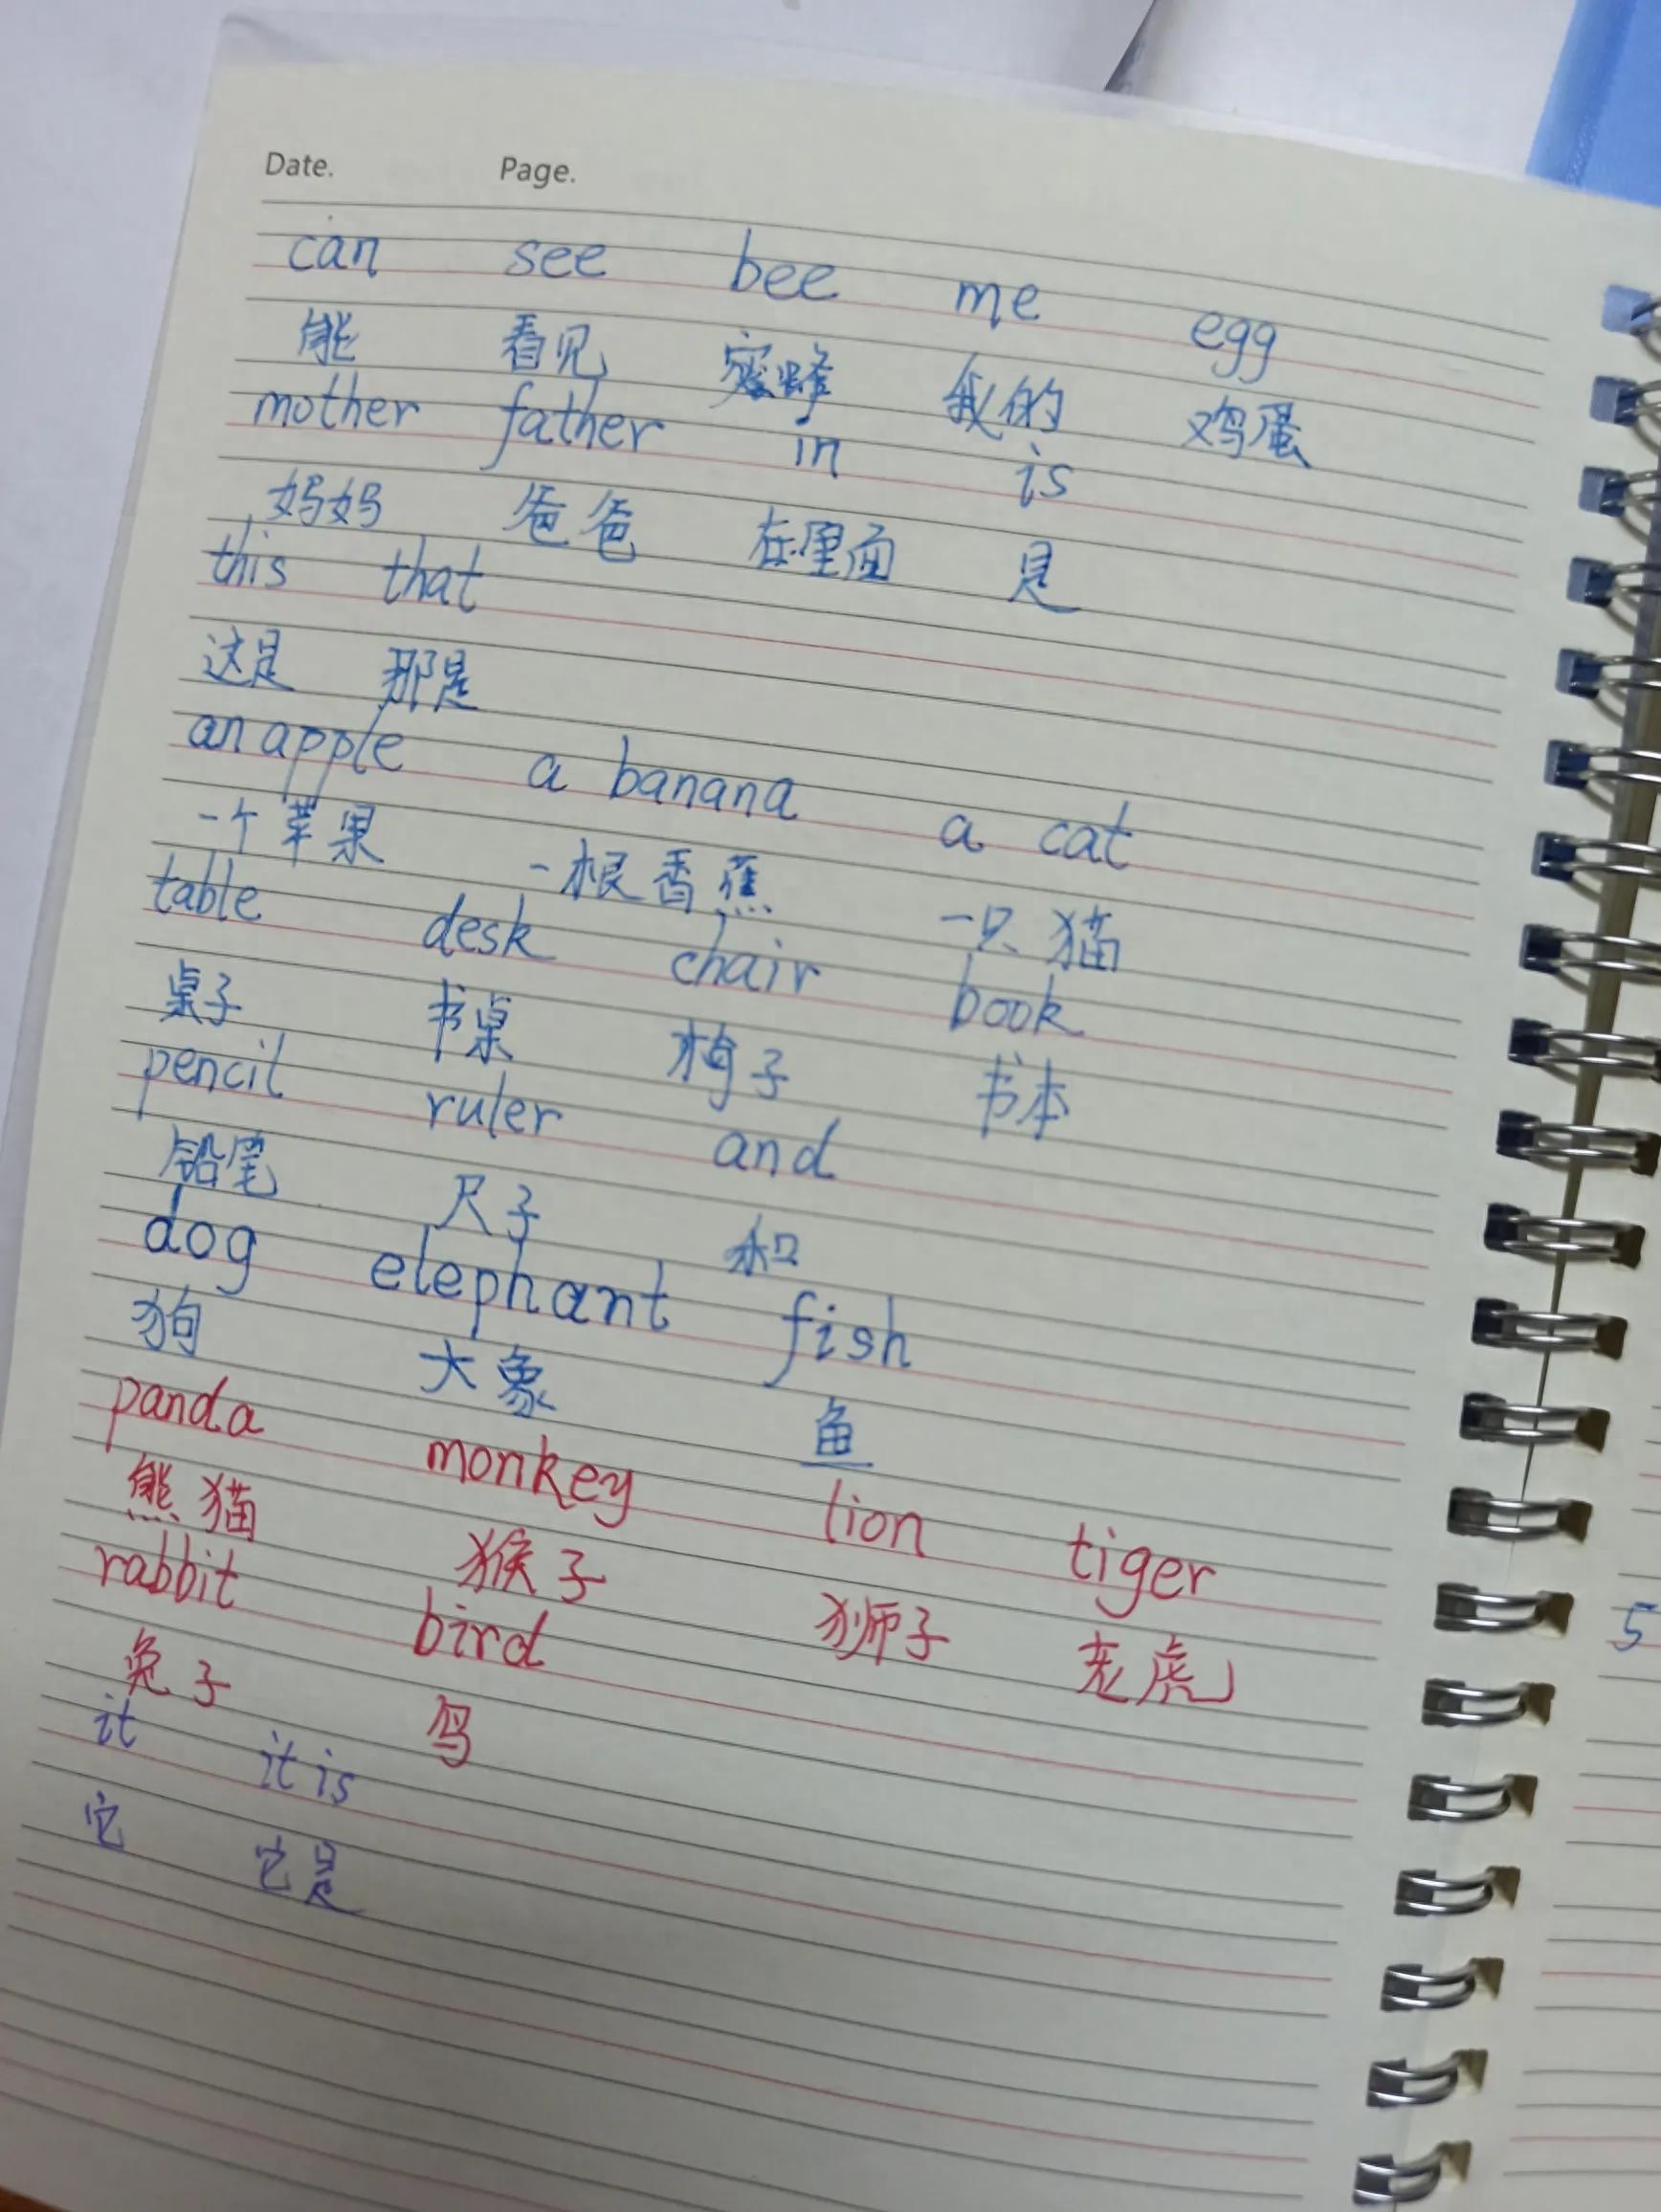 Date. Page.
can see bee me egg
能 看见 蜜蜂 我的 鸡蛋
mother father in is
妈妈 爸爸 在里面 是
this that
这是 那是
an apple a banana a cat
一个苹果 一根香蕉 一只猫
table desk chair book
桌子 书桌 椅子 书本
pencil ruler and
铅笔 尺子 和
dog elephant fish
狗 大象 鱼
panda monkey lion tiger
熊猫 猴子 狮子 老虎
rabbit bird
兔子 鸟
it it is
它 它是
5